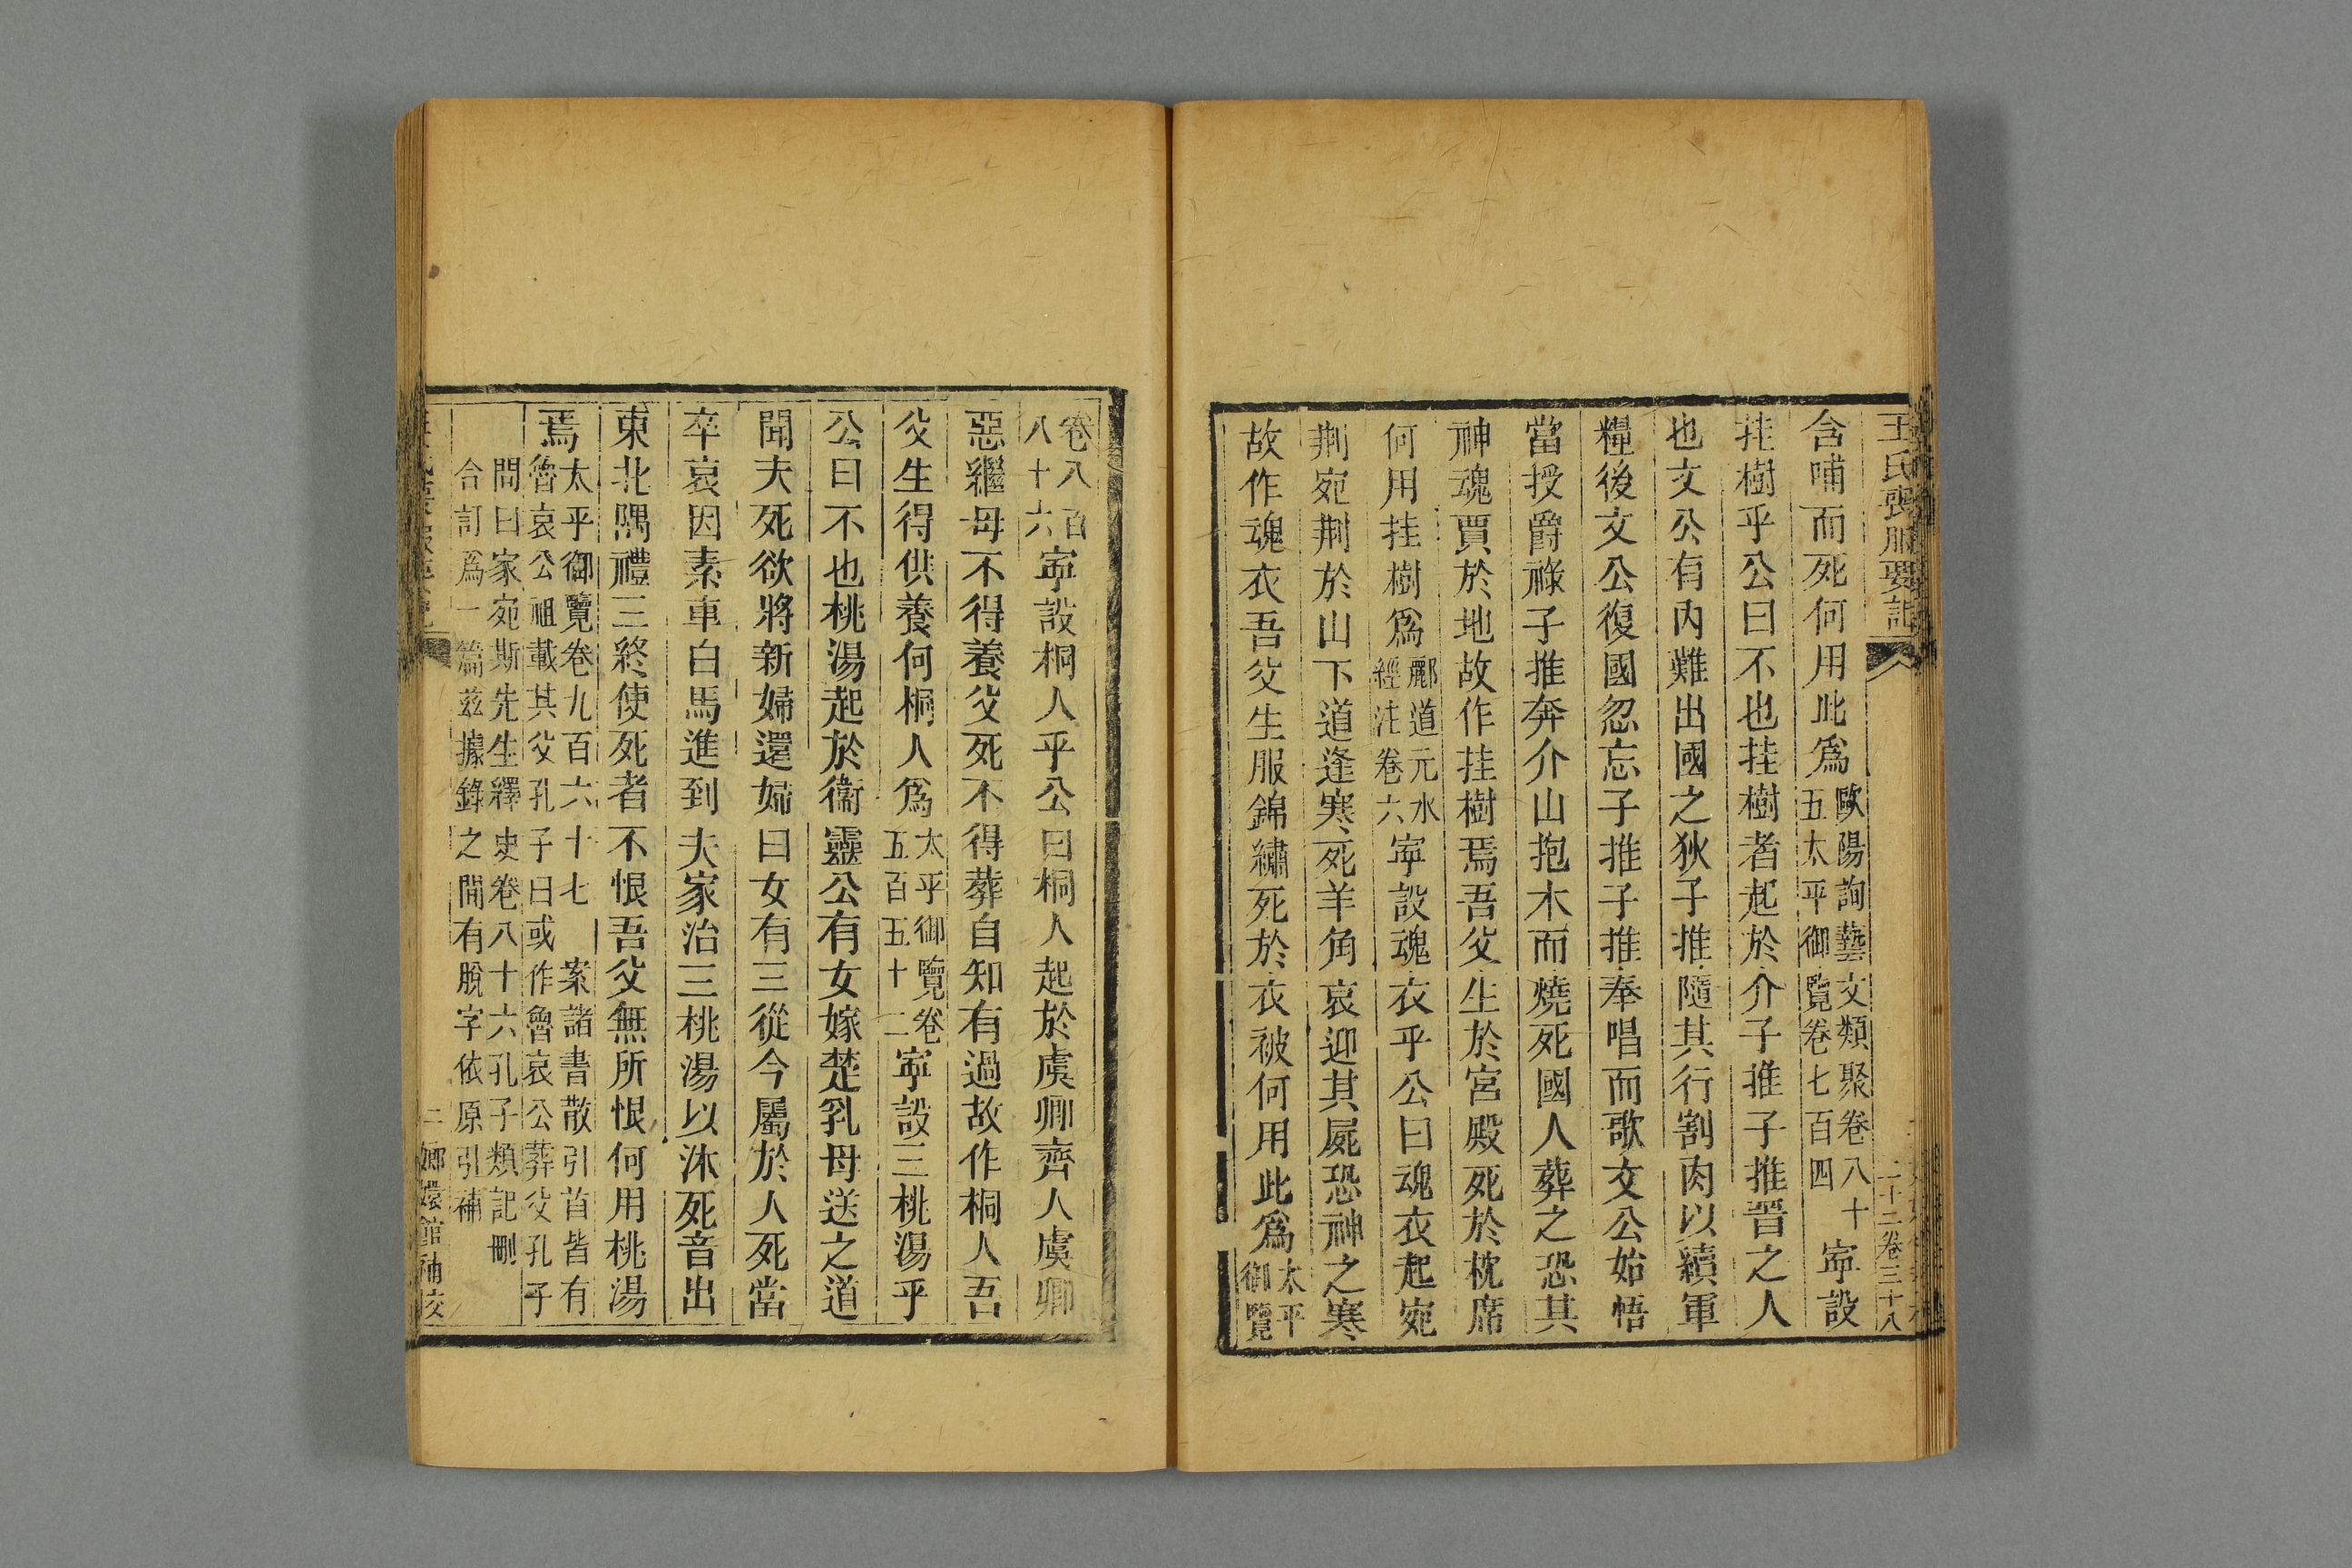 王氏喪服要記
二十二卷三十八
含哺而死何用此爲歐陽詢藝文類聚卷八十五太平御覽卷七百四寜設
挂樹乎公曰不也挂樹者起於介子推子推晉之人
也文公有内難出國之狄子推隨其行割肉以續軍
糧後文公復國忽忘子推子推奉唱而歌文公始悟
當授爵祿子推奔介山抱木而燒死國人葬之恐其
神魂賈於地故作挂樹焉吾父生於宮殿死於枕席
何用挂樹爲酈道元水經注卷六寜設魂衣乎公曰魂衣起宛
荆宛荆於山下道逢寒死羊角哀迎其屍恐神之寒
故作魂衣吾父生服錦繡死於衣被何用此爲太平御覽
卷八百八十六寜設桐人乎公曰桐人起於虞卿齊人虞卿
惡繼母不得養父死不得葬自知有過故作桐人吾
父生得供養何桐人爲太平御覽卷五百五十二寜設三桃湯乎
公曰不也桃湯起於衞靈公有女嫁楚乳母送之道
聞夫死欲將新婦還婦曰女有三從今屬於人死當
卒哀因素車白馬進到夫家治三桃湯以沐死音出
東北隅禮三終使死者不恨吾父無所恨何用桃湯
焉太平御覽卷九百六十七 案諸書散引首皆有魯哀公祖載其父孔子曰或作魯哀公葬父孔子
問曰家宛斯先生繹史卷八十六孔子類記刪合訂爲一篇茲據錄之間有脫字依原引補
二 嫏嬛館補校